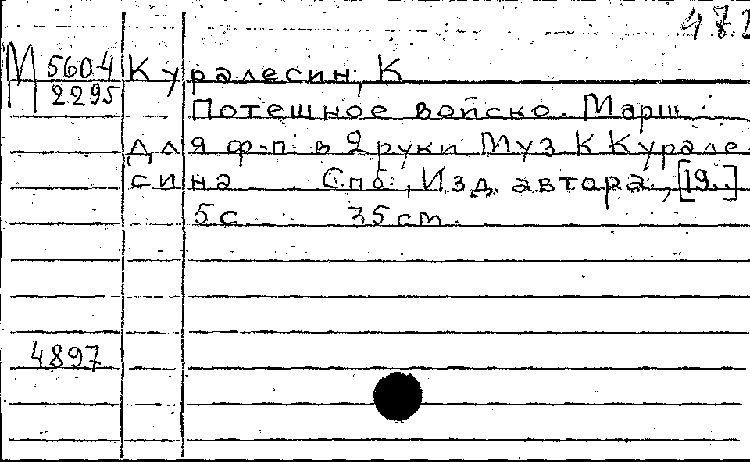 47.1
М 5604
2295
Куралесин, К
Потешное войско. Марш
для ф-п. в 2 руки Муз К Курале
сина Спб, Изд. автора, [19..]
5с 35 cm.
4897